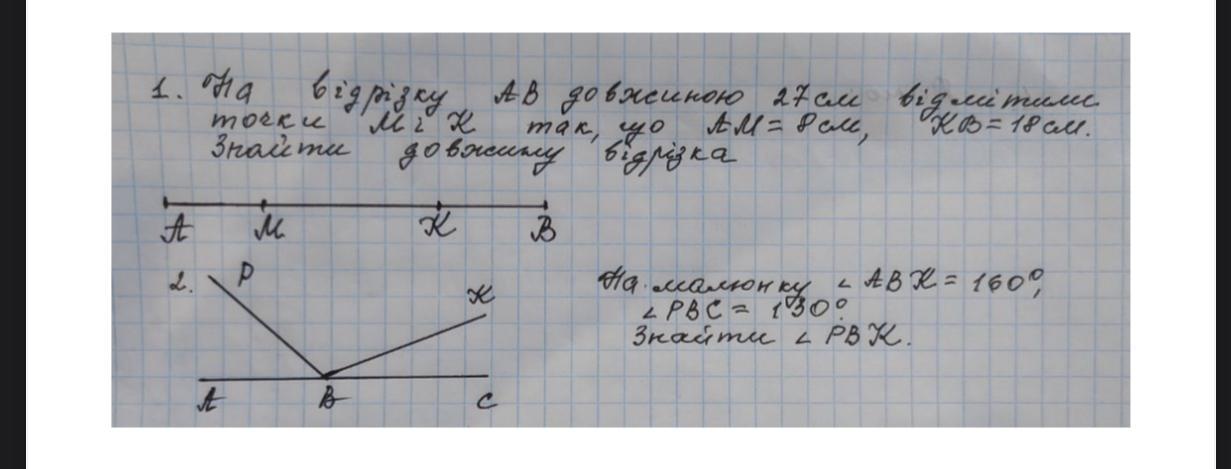 1. На відрізку АВ довжиною 27 см відмітили
точки М і К так, що АМ = 8 см, КВ = 18 см.
Знайти довжину відрізка
А М К В
2. Р К
А В С
На малюнку ∠ АВК = 160°,
∠ РВС = 130°.
Знайти ∠ РВК.